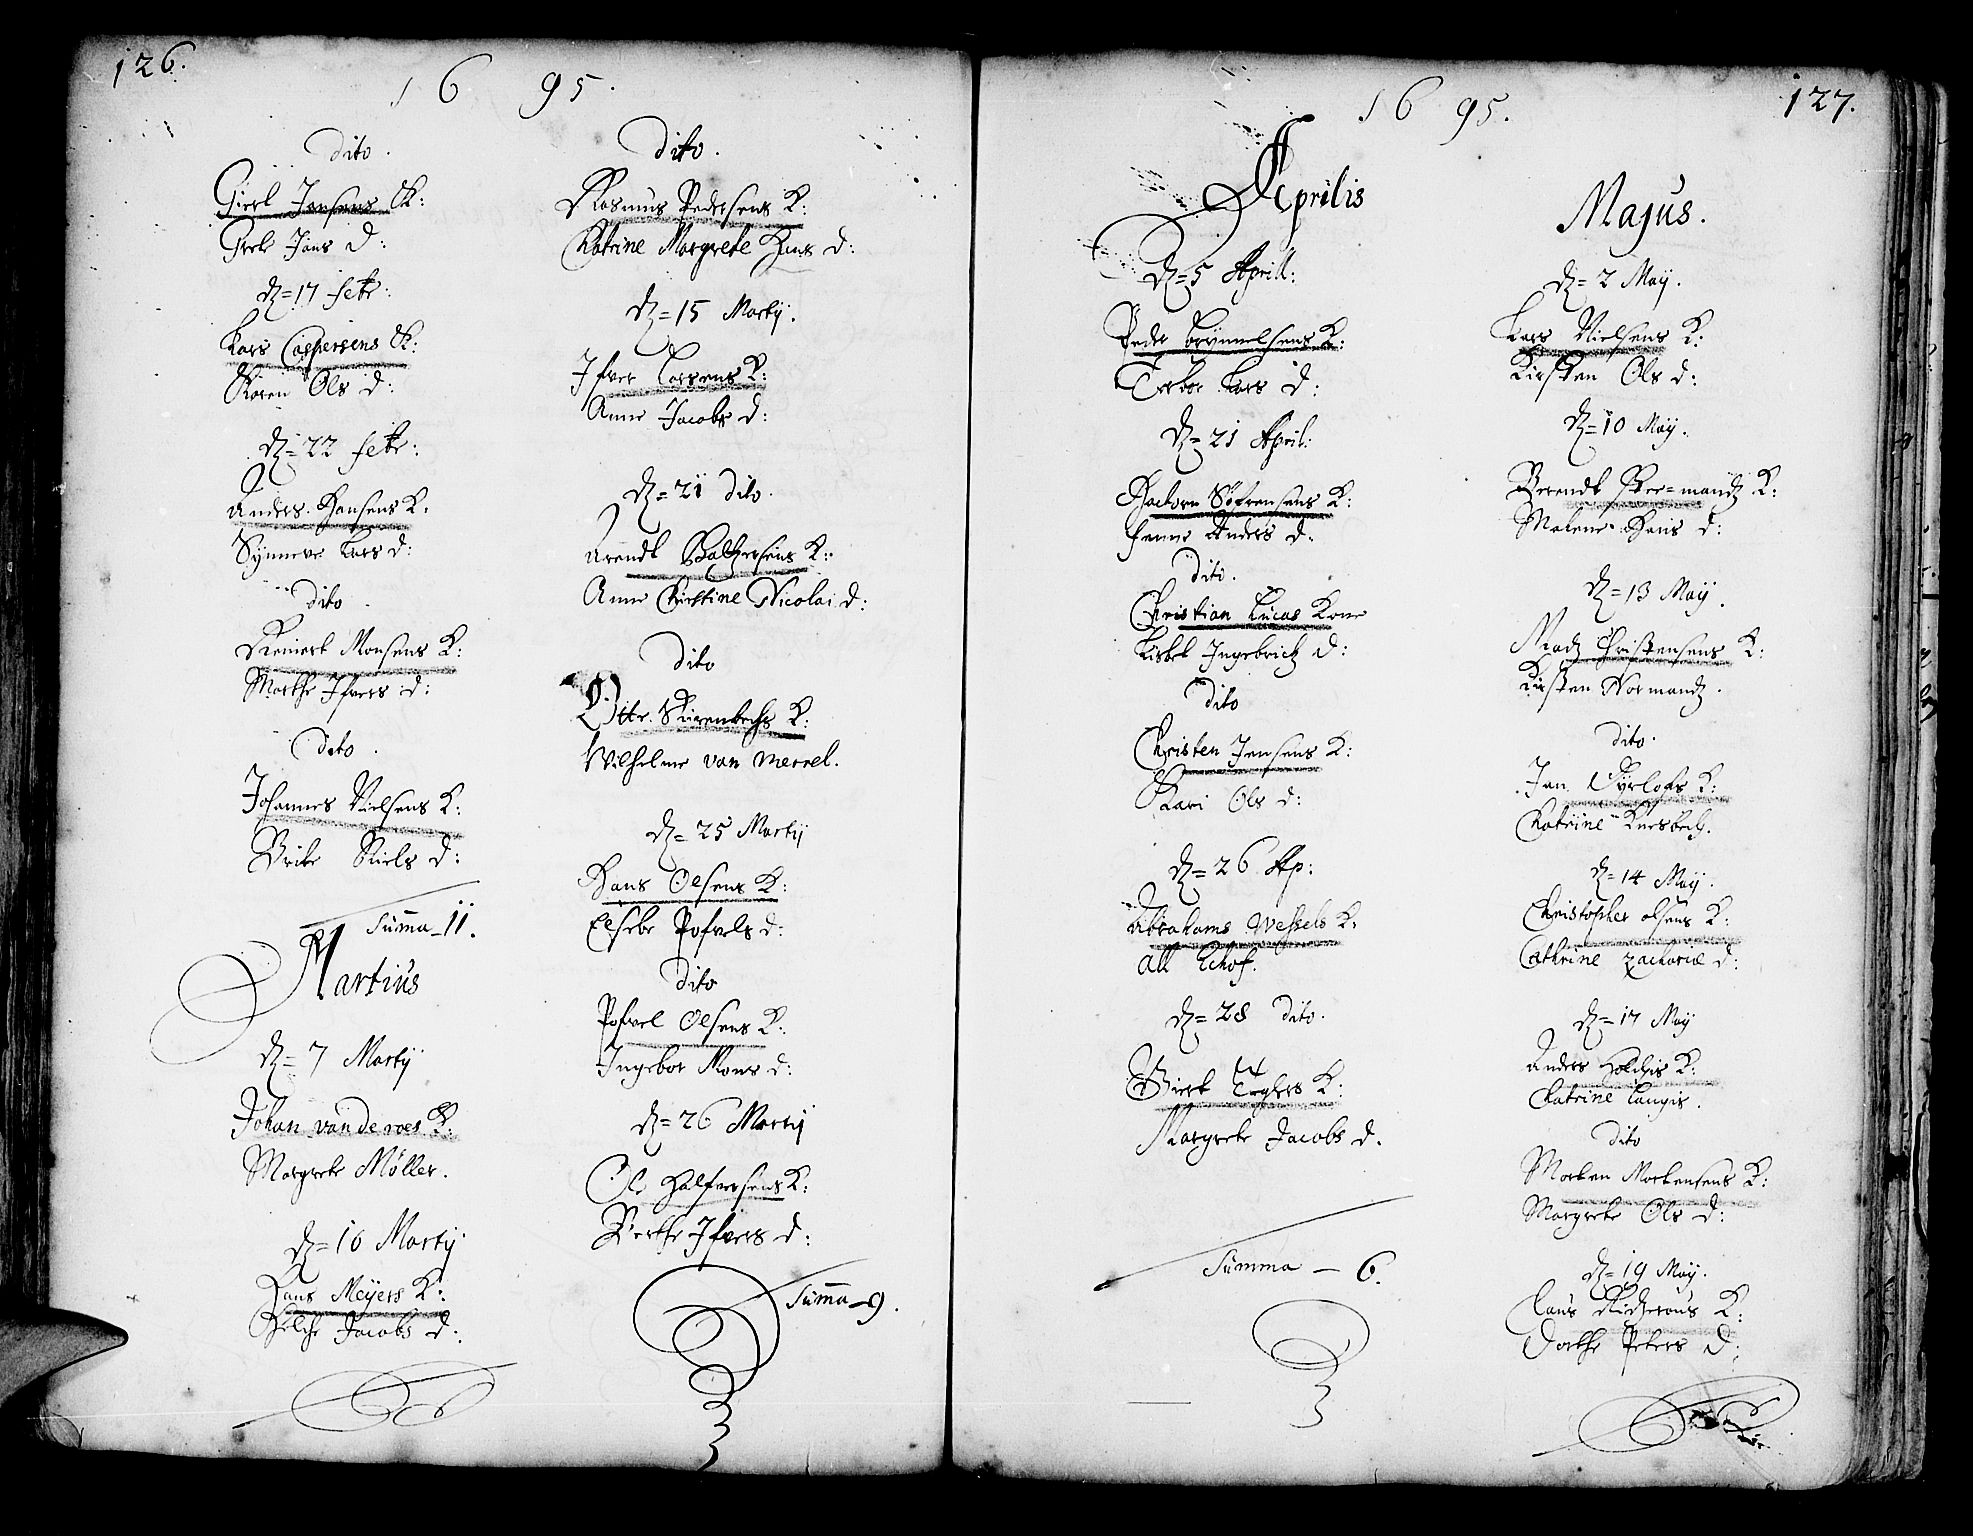 126.
1695.
dito.
Giert Jensens K:
Grete Jans D:
dz=17 febr:
Lars Caspersens K:
Karen Ols D:
dz=22 febr:
Anders Hansens K:
Synneve Lars D:
dito
Reinert Monsens K:
Marthe Ifvers D:
dito.
Johannes Nielsens K:
Brite Niels D:
Summa_11.
Martius
dz=7 Martij
Johan van de voes K:
Margrete Møller.
dz=10 Martij.
Hans Meyers K:
Jacobs D:
dito.
Rasmus Pedersens K:
Catrine Margrete Hans D:
dz=15 Martij.
Ifver Larsens K:
Anne Jacobs D:
dz=21 dito.
Arendt Baltzersens K:
Anne Christine Nicolai D:
dito
Otte K:
Wilhelme van Merrel.
dz=25 Martij
Hans Olsens K:
Elsebe Pofvels D:
dito
Pofvel Olsens K:
Ingebor Mons D:
dz=26 Martij
Ole Halfversens K:
Berthe Ifvers D:
Summa_9.
127.
1695.
Aprilis
dz=5 Aprill:
Peder Brynnelsens K:
Torbor Lars D:
dz=21 April:
Zachorn Søfrensens K:
Anders D:
dito.
Christian Lucas Kone
Lisbet Ingebrictz D:
dito
Christen Jensens K:
Kari Ols D:
dz=26 Ap:
Abrahams Wessels K:
Alt Echof.
dz=28 dito.
Giert K:
Margrete Jacobs D.
Summa _ 6.
Majus.
dz=2 Maij.
Lars Nielsens K:
Kirsten Ols D:
dz=10 Maij.
Berendt K:
Malene Hans D:
dz=13 Maij.
Madz Christensens K:
Kirsten Normandz.
dito.
Jan K:
Catrine
dz=14 Maij.
Christopher Olsens K:
Cathrine Zachariæ D:
dz=17 Maij
Anders K:
Catrine Langis.
dito
Morten Mortensens K:
Margrete Ols D:
dz=19 Maij.
Claus K:
Dorthe Peters D: